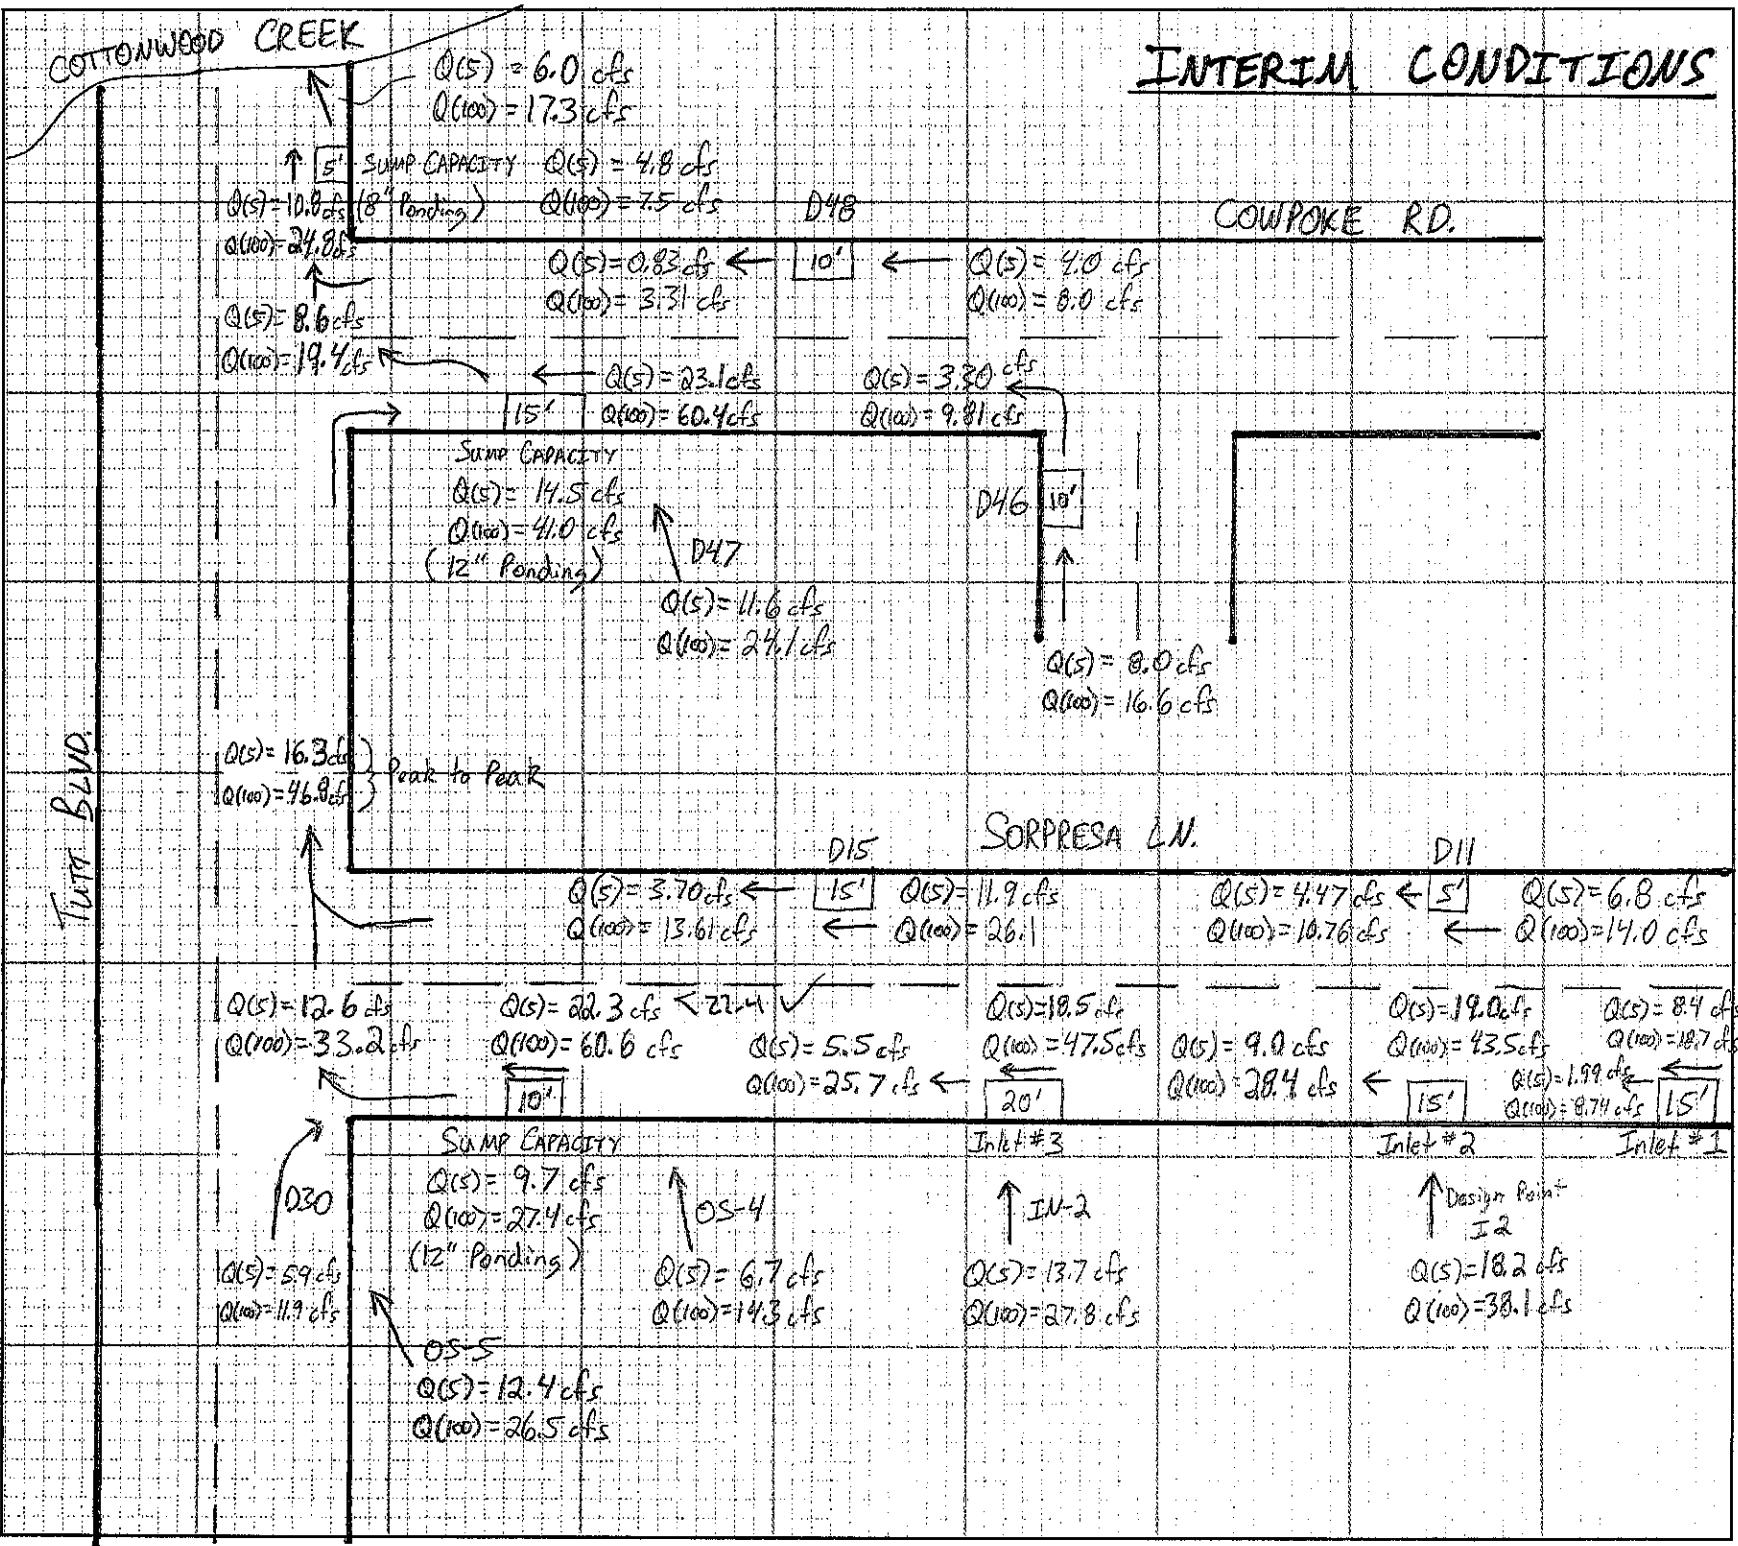 COTTONWOOD CREEK
INTERIM CONDITIONS
Q(5) = 6.0 cfs
Q(100) = 17.3 cfs
5'
SUMP CAPACITY
(8" Ponding)
Q(5) = 4.8 cfs
Q(100) = 7.5 cfs
Q(5)= 10.8 cfs
Q(100)= 24.8 cfs
D48
COWPOKE RD.
Q(5)= 0.83 cfs
Q(100)= 3.31 cfs
10'
Q(5)= 4.0 cfs
Q(100)= 8.0 cfs
Q(5)= 8.6 cfs
Q(100)= 19.4 cfs
Q(5)= 23.1 cfs
Q(100)= 60.4 cfs
Q(5)= 3.30 cfs
Q(100)= 9.81 cfs
15'
SUMP CAPACITY
Q(5)= 14.5 cfs
Q(100)= 41.0 cfs
(12" Ponding)
D47
Q(5)= 11.6 cfs
Q(100)= 24.1 cfs
D46
10'
Q(5)= 8.0 cfs
Q(100)= 16.6 cfs
TUTT BLVD.
Q(5)= 16.3 cfs
Q(100)= 46.8 cfs
Peak to Peak
SORPRESA LN.
D15
D11
Q(5)= 3.70 cfs
Q(100)= 13.61 cfs
15'
Q(5)= 11.9 cfs
Q(100)= 26.1
Q(5)= 4.47 cfs
Q(100)= 10.76 cfs
5'
Q(5)= 6.8 cfs
Q(100)= 14.0 cfs
Q(5)= 12.6 cfs
Q(100)= 33.2 cfs
Q(5)= 22.3 cfs < 22.4 ✓
Q(100)= 60.6 cfs
10'
Q(5)= 5.5 cfs
Q(100)= 25.7 cfs
Q(5)= 18.5 cfs
Q(100)= 47.5 cfs
20'
Q(5)= 9.0 cfs
Q(100)= 28.4 cfs
Q(5)= 19.0 cfs
Q(100)= 43.5 cfs
15'
Q(5)= 8.4 cfs
Q(100)= 18.7 cfs
Q(5)= 1.99 cfs
Q(100)= 8.74 cfs
15'
SUMP CAPACITY
Q(5)= 9.7 cfs
Q(100)= 27.4 cfs
(12" Ponding)
Inlet #3
Inlet #2
Inlet #1
D30
Q(5)= 5.9 cfs
Q(100)= 11.9 cfs
OS-4
Q(5)= 6.7 cfs
Q(100)= 14.3 cfs
IN-2
Q(5)= 13.7 cfs
Q(100)= 27.8 cfs
Design Point
I2
Q(5)= 18.2 cfs
Q(100)= 38.1 cfs
OS-5
Q(5)= 12.4 cfs
Q(100)= 26.5 cfs